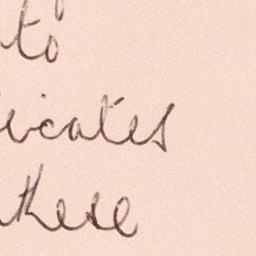 to
icates
these